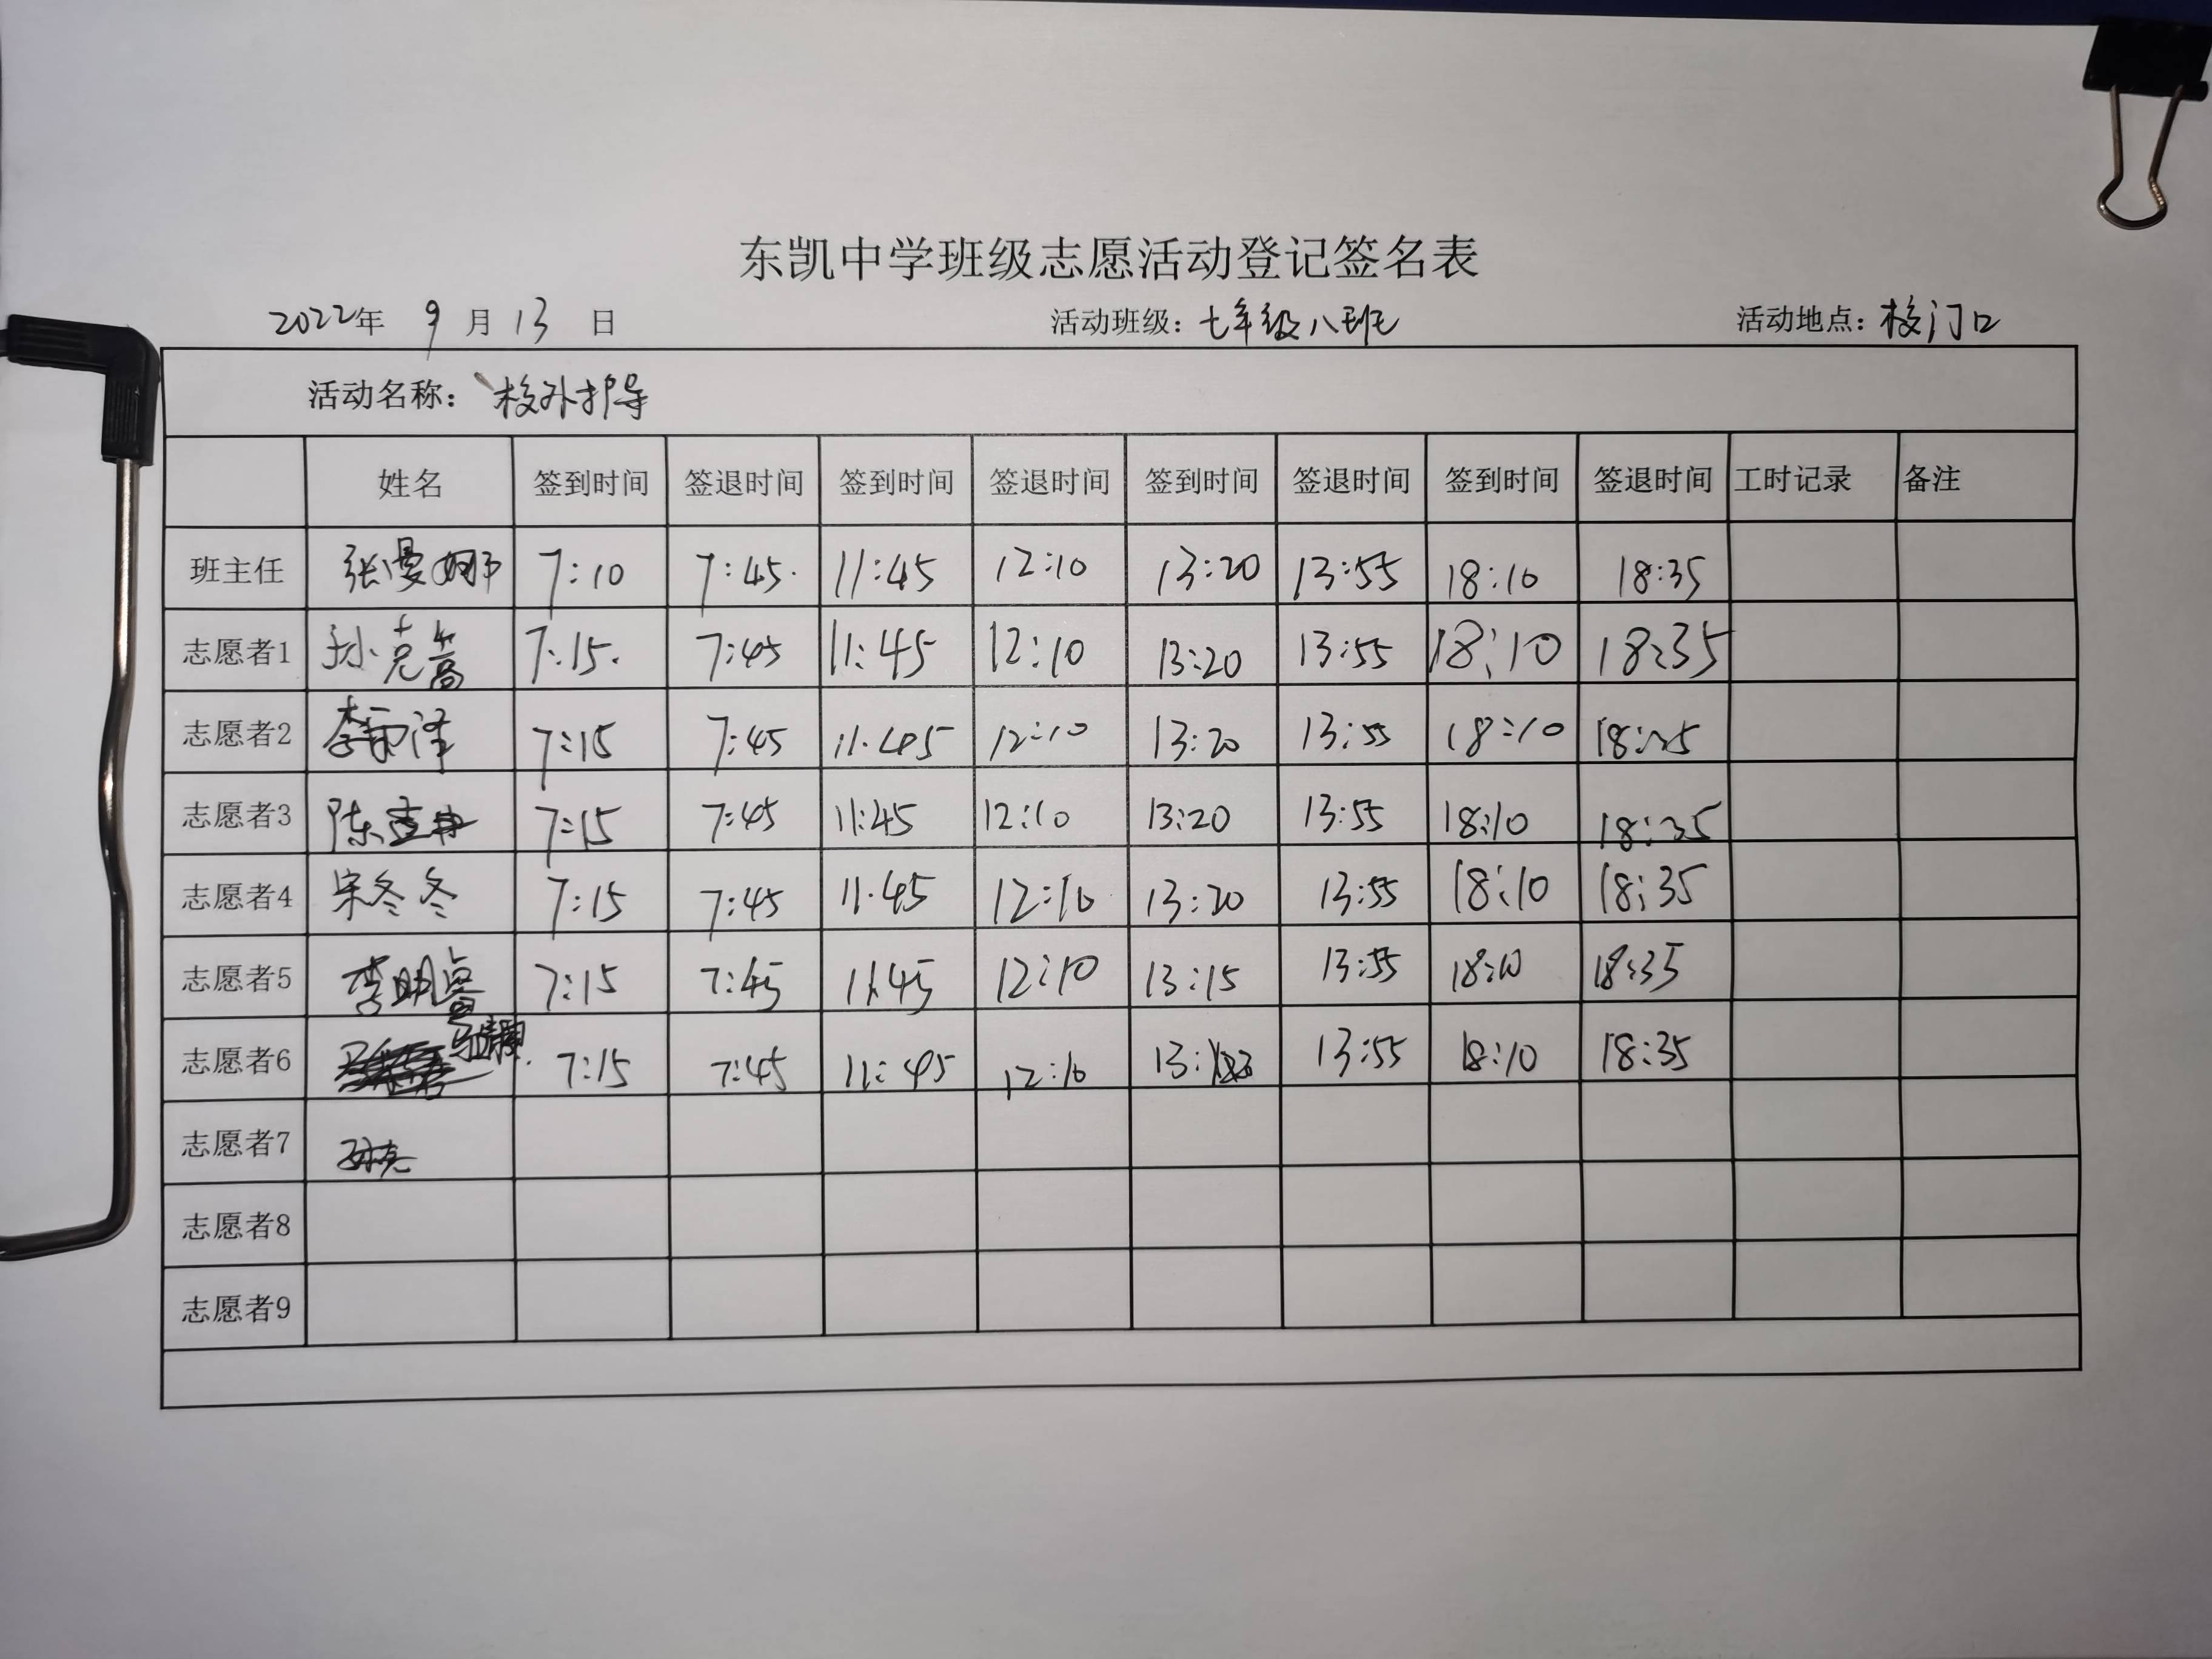 东凯中学班级志愿活动登记签名表
2022年 9 月 13 日 活动班级：七年级八班 活动地点：校门口
活动名称：校外护导
姓名 签到时间 签退时间 签到时间 签退时间 签到时间 签退时间 签到时间 签退时间 工时记录 备注
班主任 张曼娜 7:10 7:45 11:45 12:10 13:20 13:55 18:10 18:35
志愿者1 孙克 7:15 7:45 11:45 12:10 13:20 13:55 18:10 18:35
志愿者2 李雨泽 7:15 7:45 11:45 12:10 13:20 13:55 18:10 18:35
志愿者3 陈 7:15 7:45 11:45 12:10 13:20 13:55 18:10 18:35
志愿者4 宋冬冬 7:15 7:45 11:45 12:10 13:20 13:55 18:10 18:35
志愿者5 李明 7:15 7:45 11:45 12:10 13:15 13:55 18:10 18:35
志愿者6 7:15 7:45 11:45 12:10 13:55 18:10 18:35
志愿者7 孙亮
志愿者8
志愿者9